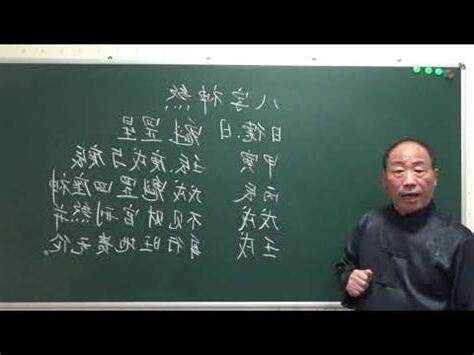 八字神煞
日德日 魁罡星
甲寅 壬辰庚戌与庚辰
丙辰 戊戌魁罡四座神
戊戌 不见财官刑煞并
壬戌 身行旺地贵无伦。